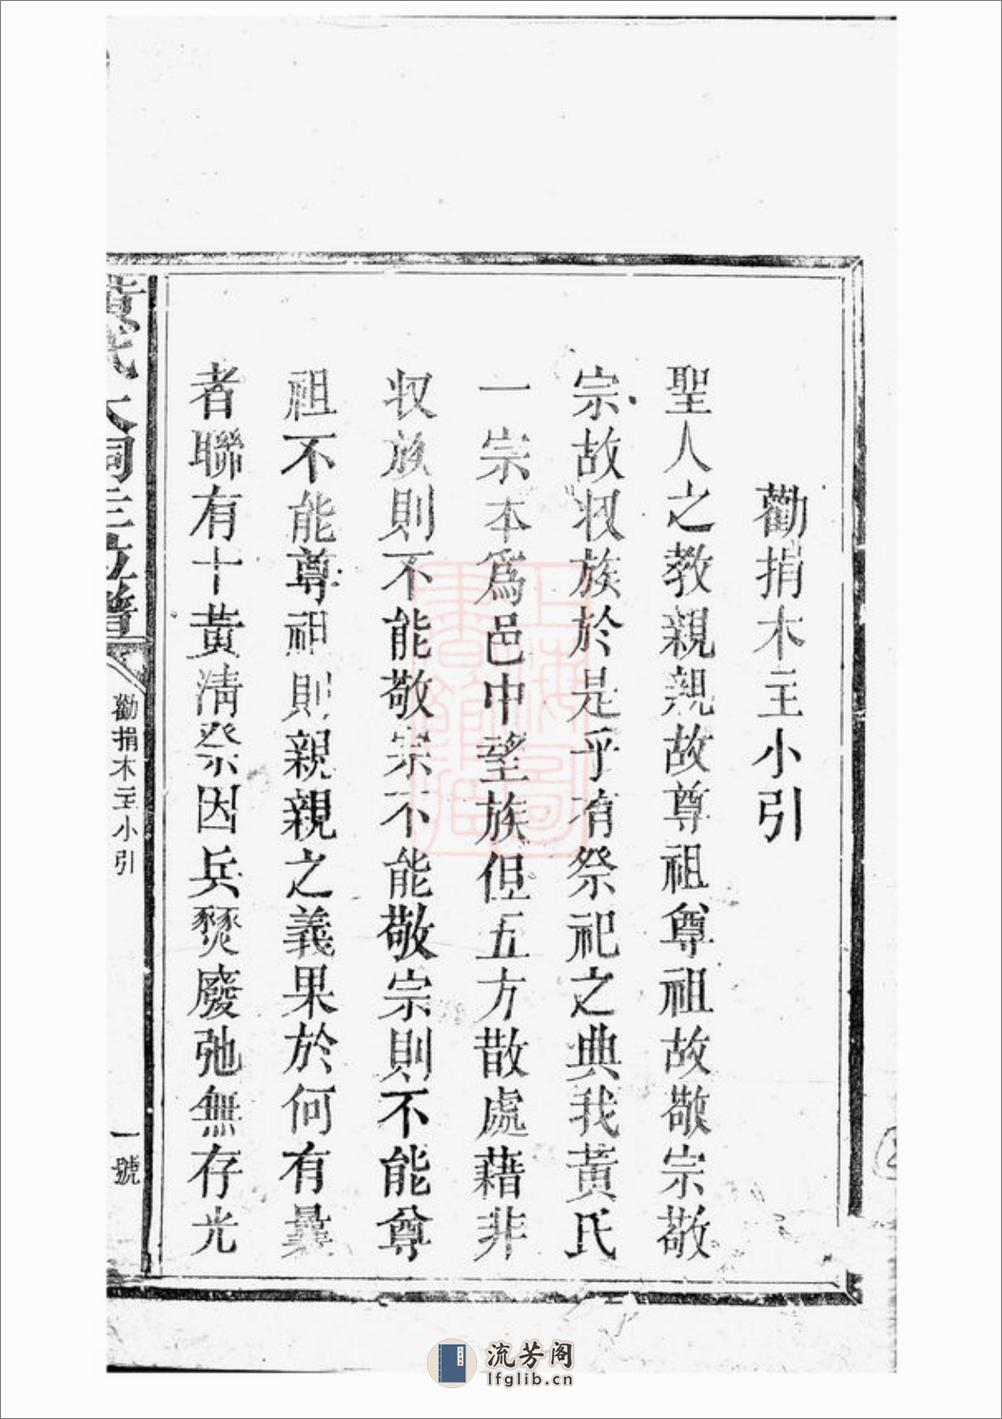 勸捐木主小引
聖人之教親親故尊祖尊祖故敬宗敬
宗故収族於是乎有祭祀之典我黃氏
一宗本爲邑中望族但五方散處藉非
収族則不能敬宗不能敬宗則不能尊
祖不能尊祖則親親之義果於何有曩
者聯有十黃清祭因兵燹廢弛無存光
黃氏大祠主位譜
勸捐木主小引
一號
上海圖書館藏
流芳阁
lfglib.cn